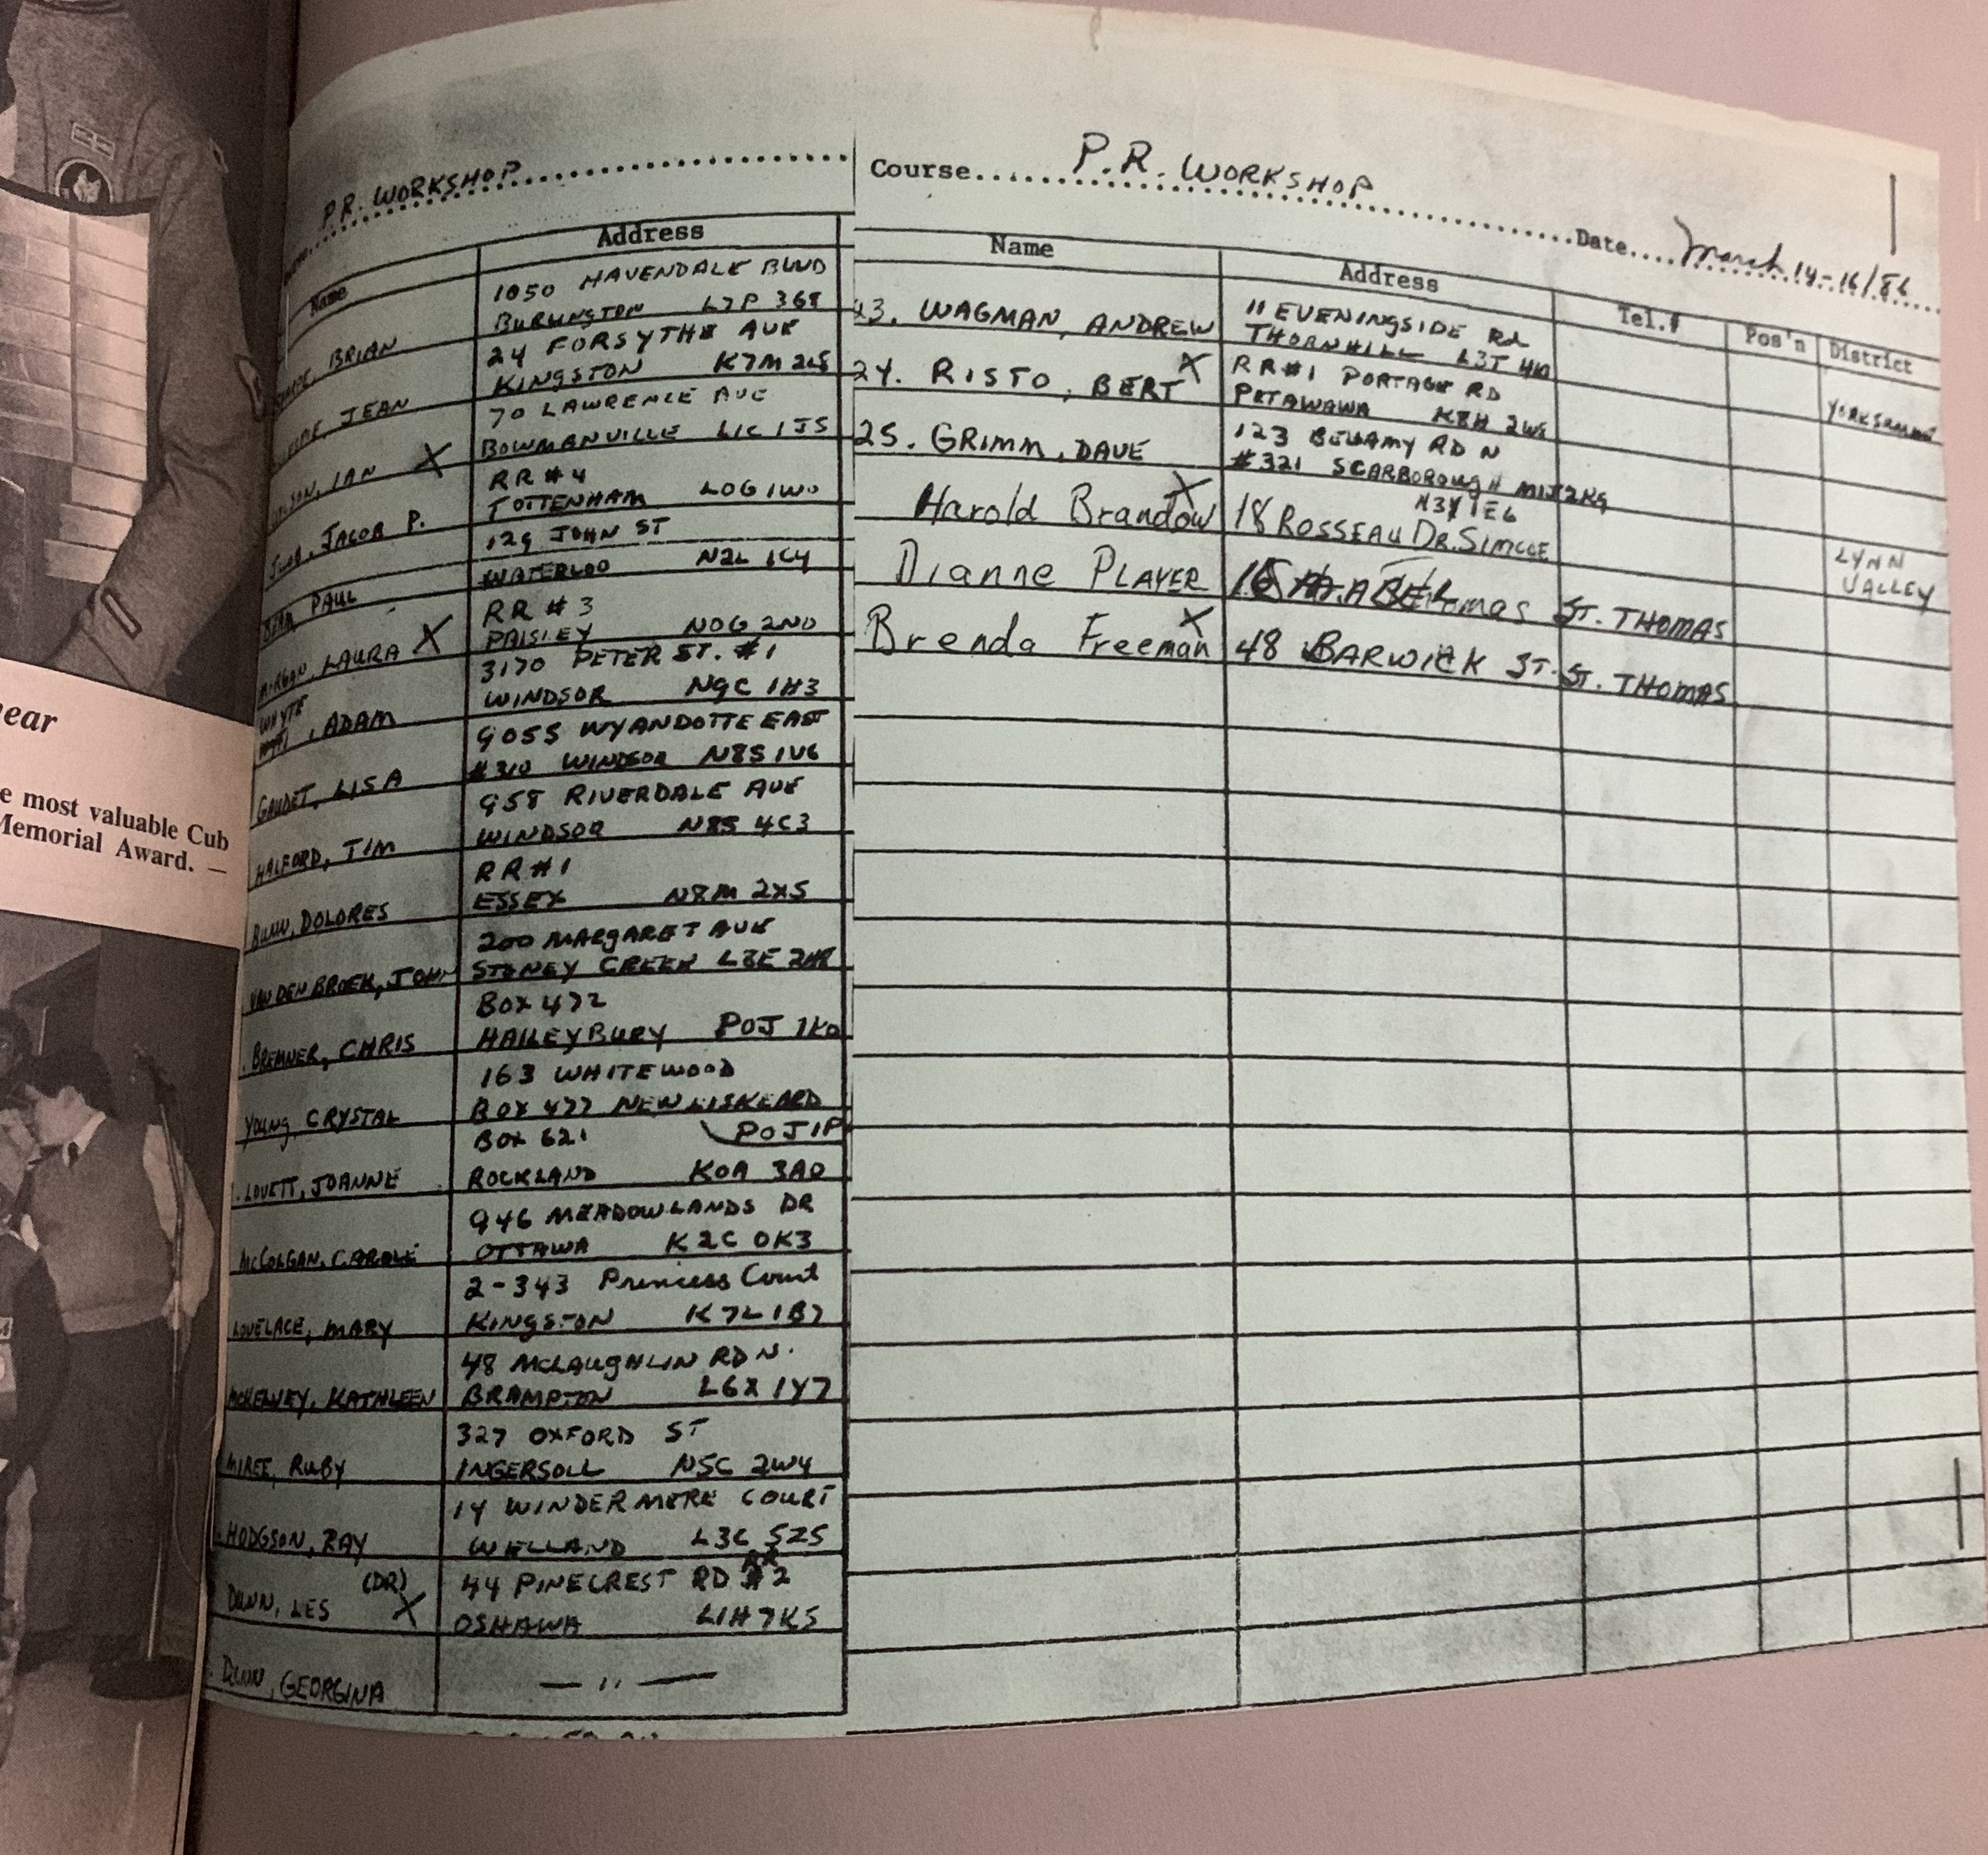 P.R. WORKSHOP
Name Address
BRIAN 1050 HAVENDALE BLVD
BURLINGTON L7P 3G8
JEAN 24 FORSYTHE AVE
KINGSTON K7M 2L5
IAN X 70 LAWRENCE AVE
BOWMANVILLE L1C 1J5
JACOB P. RR #4
TOTTENHAM L0G 1W0
PAUL 129 JOHN ST
WATERLOO N2L 1C4
MORGAN, LAURA X RR #3
PAISLEY N0G 2N0
WHYTE, ADAM 3170 PETER ST. #1
WINDSOR N9C 1H3
GAUDET, LISA 9055 WYANDOTTE EAST
#310 WINDSOR N8S 1V6
HALFORD, TIM 958 RIVERDALE AVE
WINDSOR N8S 4C3
DOLORES RR #1
ESSEX N8M 2X5
VAN DEN BROEK, JOHN 200 MARGARET AVE
STONEY CREEK L8E 2H8
BREMNER, CHRIS BOX 472
HAILEYBURY P0J 1K0
YOUNG, CRYSTAL 163 WHITEWOOD
BOX 477 NEW LISKEARD
P0J 1P
LOVETT, JOANNE BOX 621
ROCKLAND K0A 3A0
McCOLGAN, CAROLE 946 MEADOWLANDS DR
OTTAWA K2C 0K3
LOVELACE, MARY 2-343 Princess Court
KINGSTON K7L 1B7
McKELVEY, KATHLEEN 48 McLAUGHLIN RD N.
BRAMPTON L6X 1Y7
MIREE, RUBY 327 OXFORD ST
INGERSOLL N5C 2W4
HODGSON, RAY 14 WINDERMERE COURT
WELLAND L3C 5Z5
DUNN, LES (DR) X 44 PINECREST RD RR #2
OSHAWA L1H 7K5
DUNN, GEORGINA — " —
Course P.R. WORKSHOP Date March 14-16/86
Name Address Tel.# Pos'n District
23. WAGMAN, ANDREW 11 EVENINGSIDE Rd
THORNHILL L3T
24. RISTO, BERT X RR#1 PORTAGE RD
PETAWAWA K8H 2W8
25. GRIMM, DAVE 123 BELLAMY RD N
#321 SCARBOROUGH M1J 2K9
N3Y 1E6
Harold Brandow X 18 ROSSEAU DR. SIMCOE LYNN
VALLEY
Dianne PLAYER ST. THOMAS
Brenda Freeman X 48 BARWICK ST. ST. THOMAS
ear
e most valuable Cub
Memorial Award. —